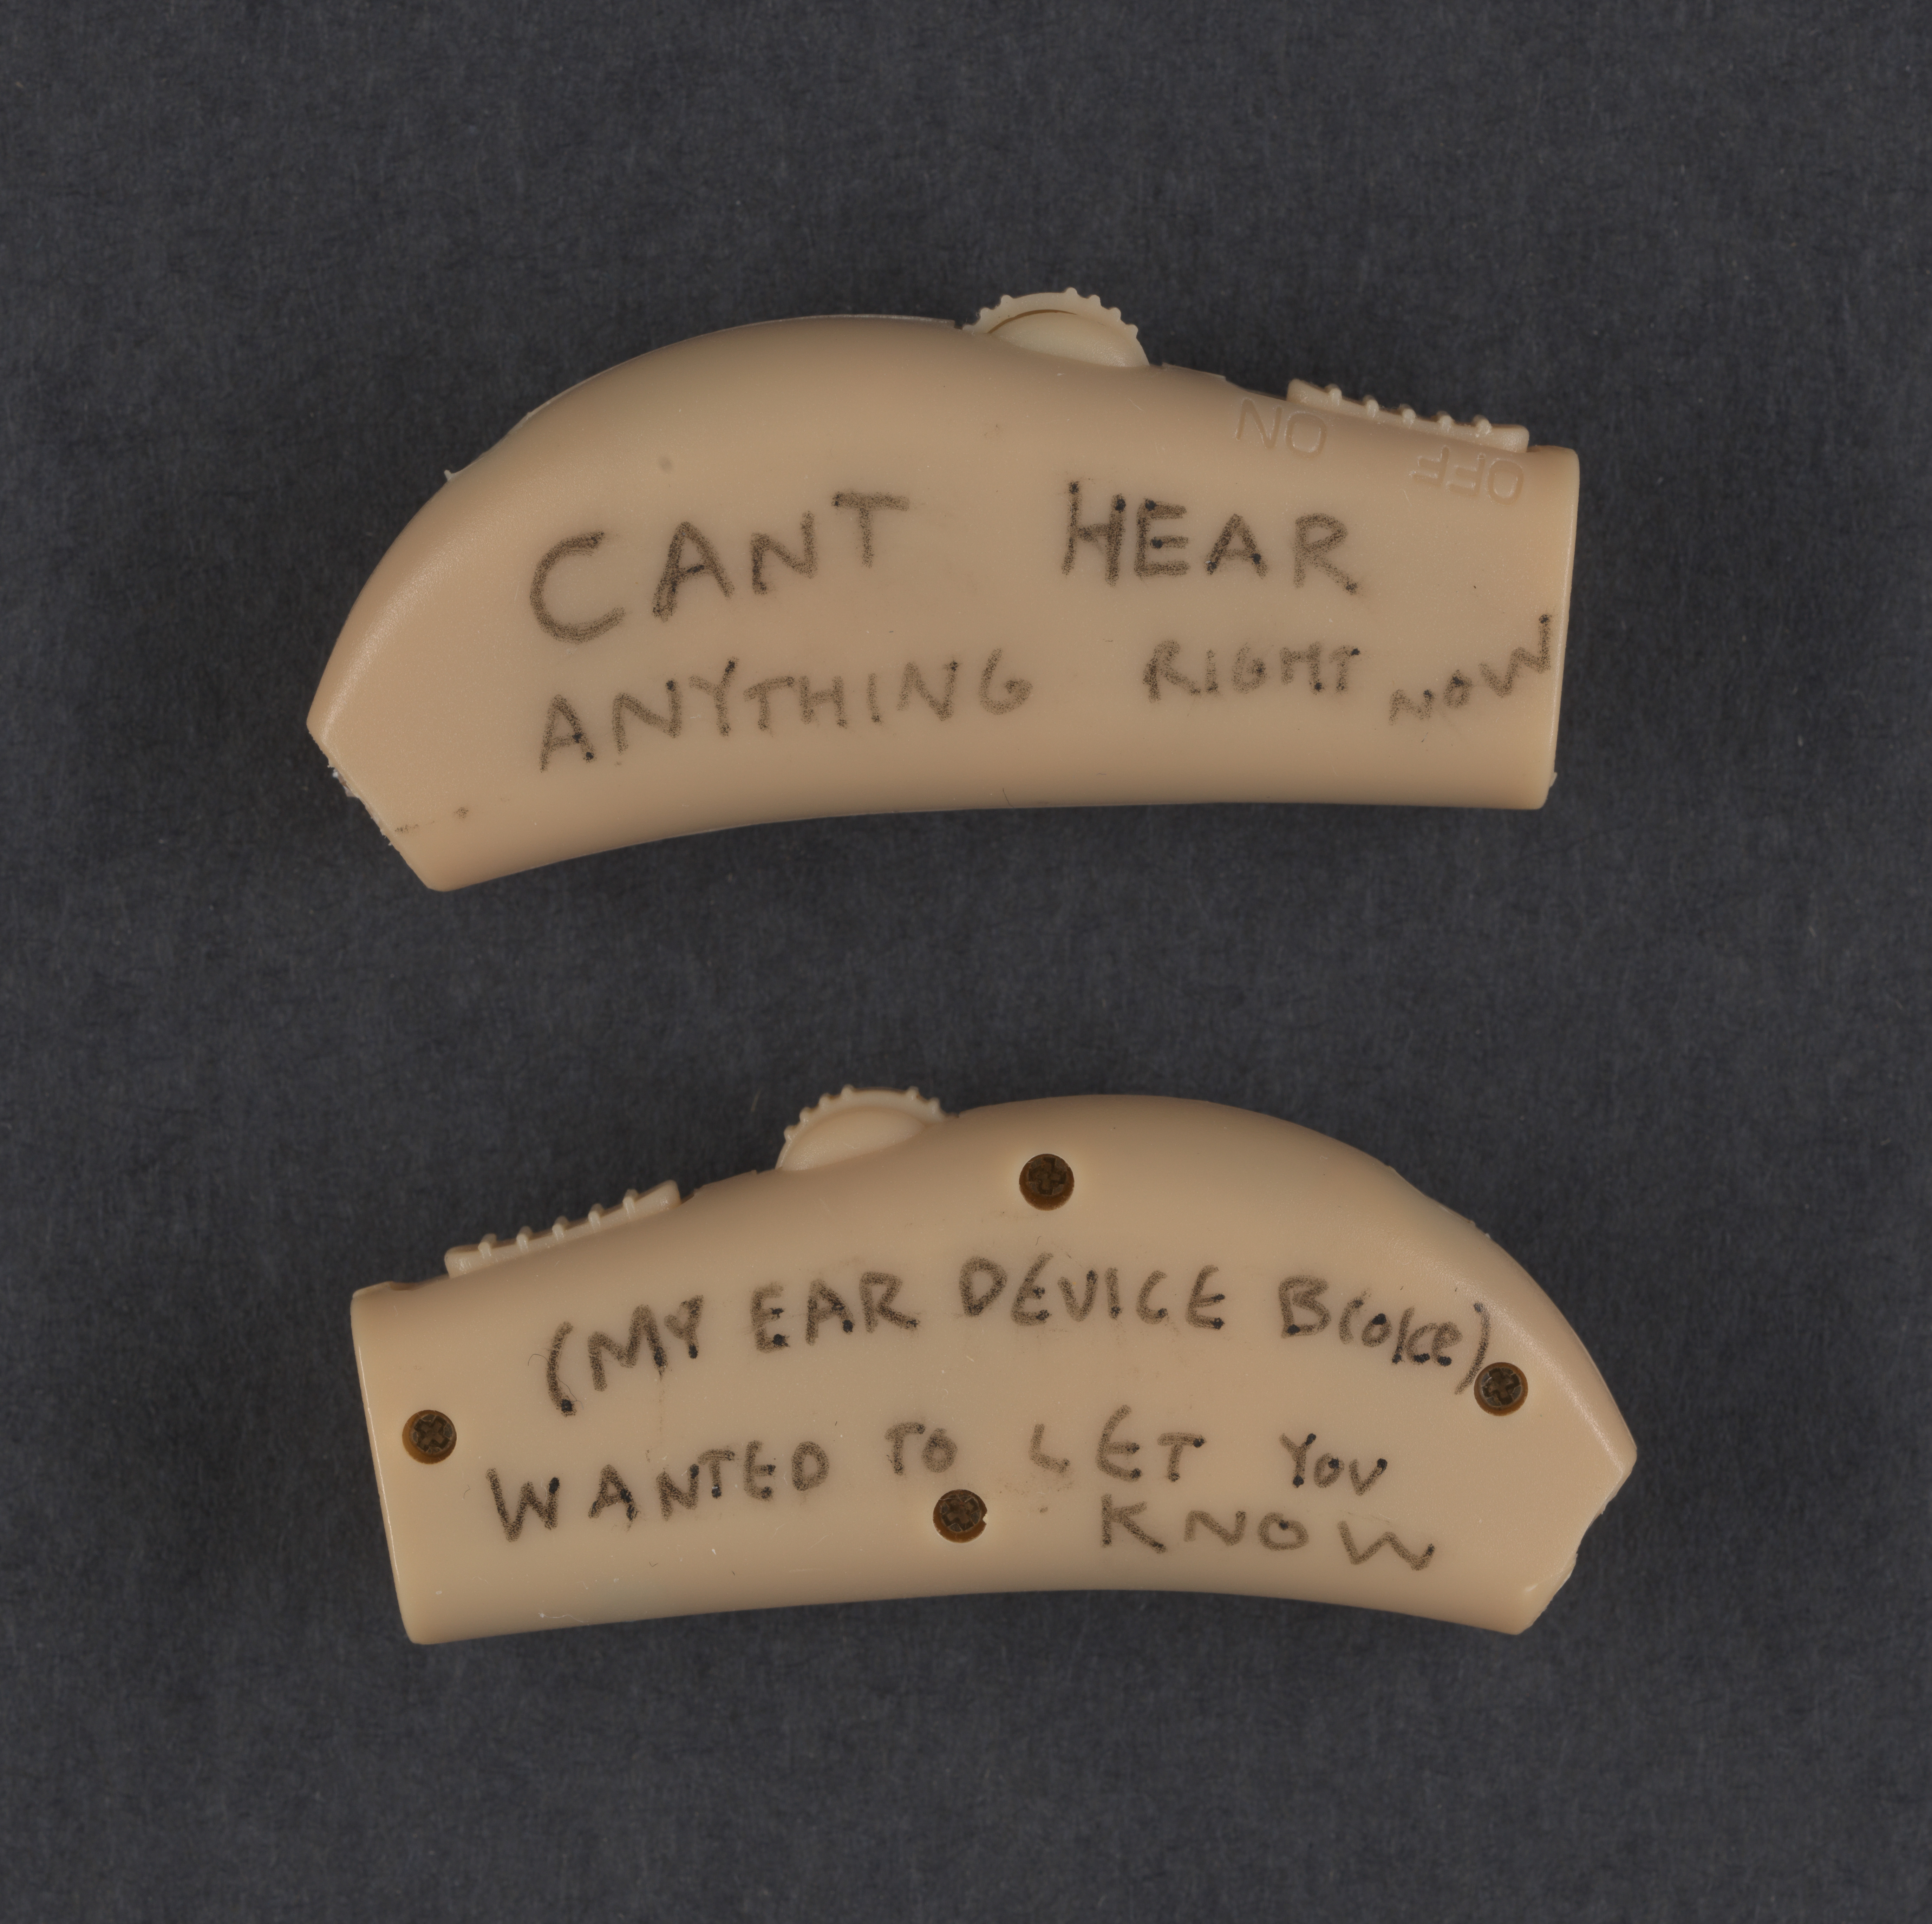 ON
OFF
CANT HEAR
ANYTHING RIGHT NOW
(MY EAR DEVICE Broke)
WANTED TO LET YOU
KNOW